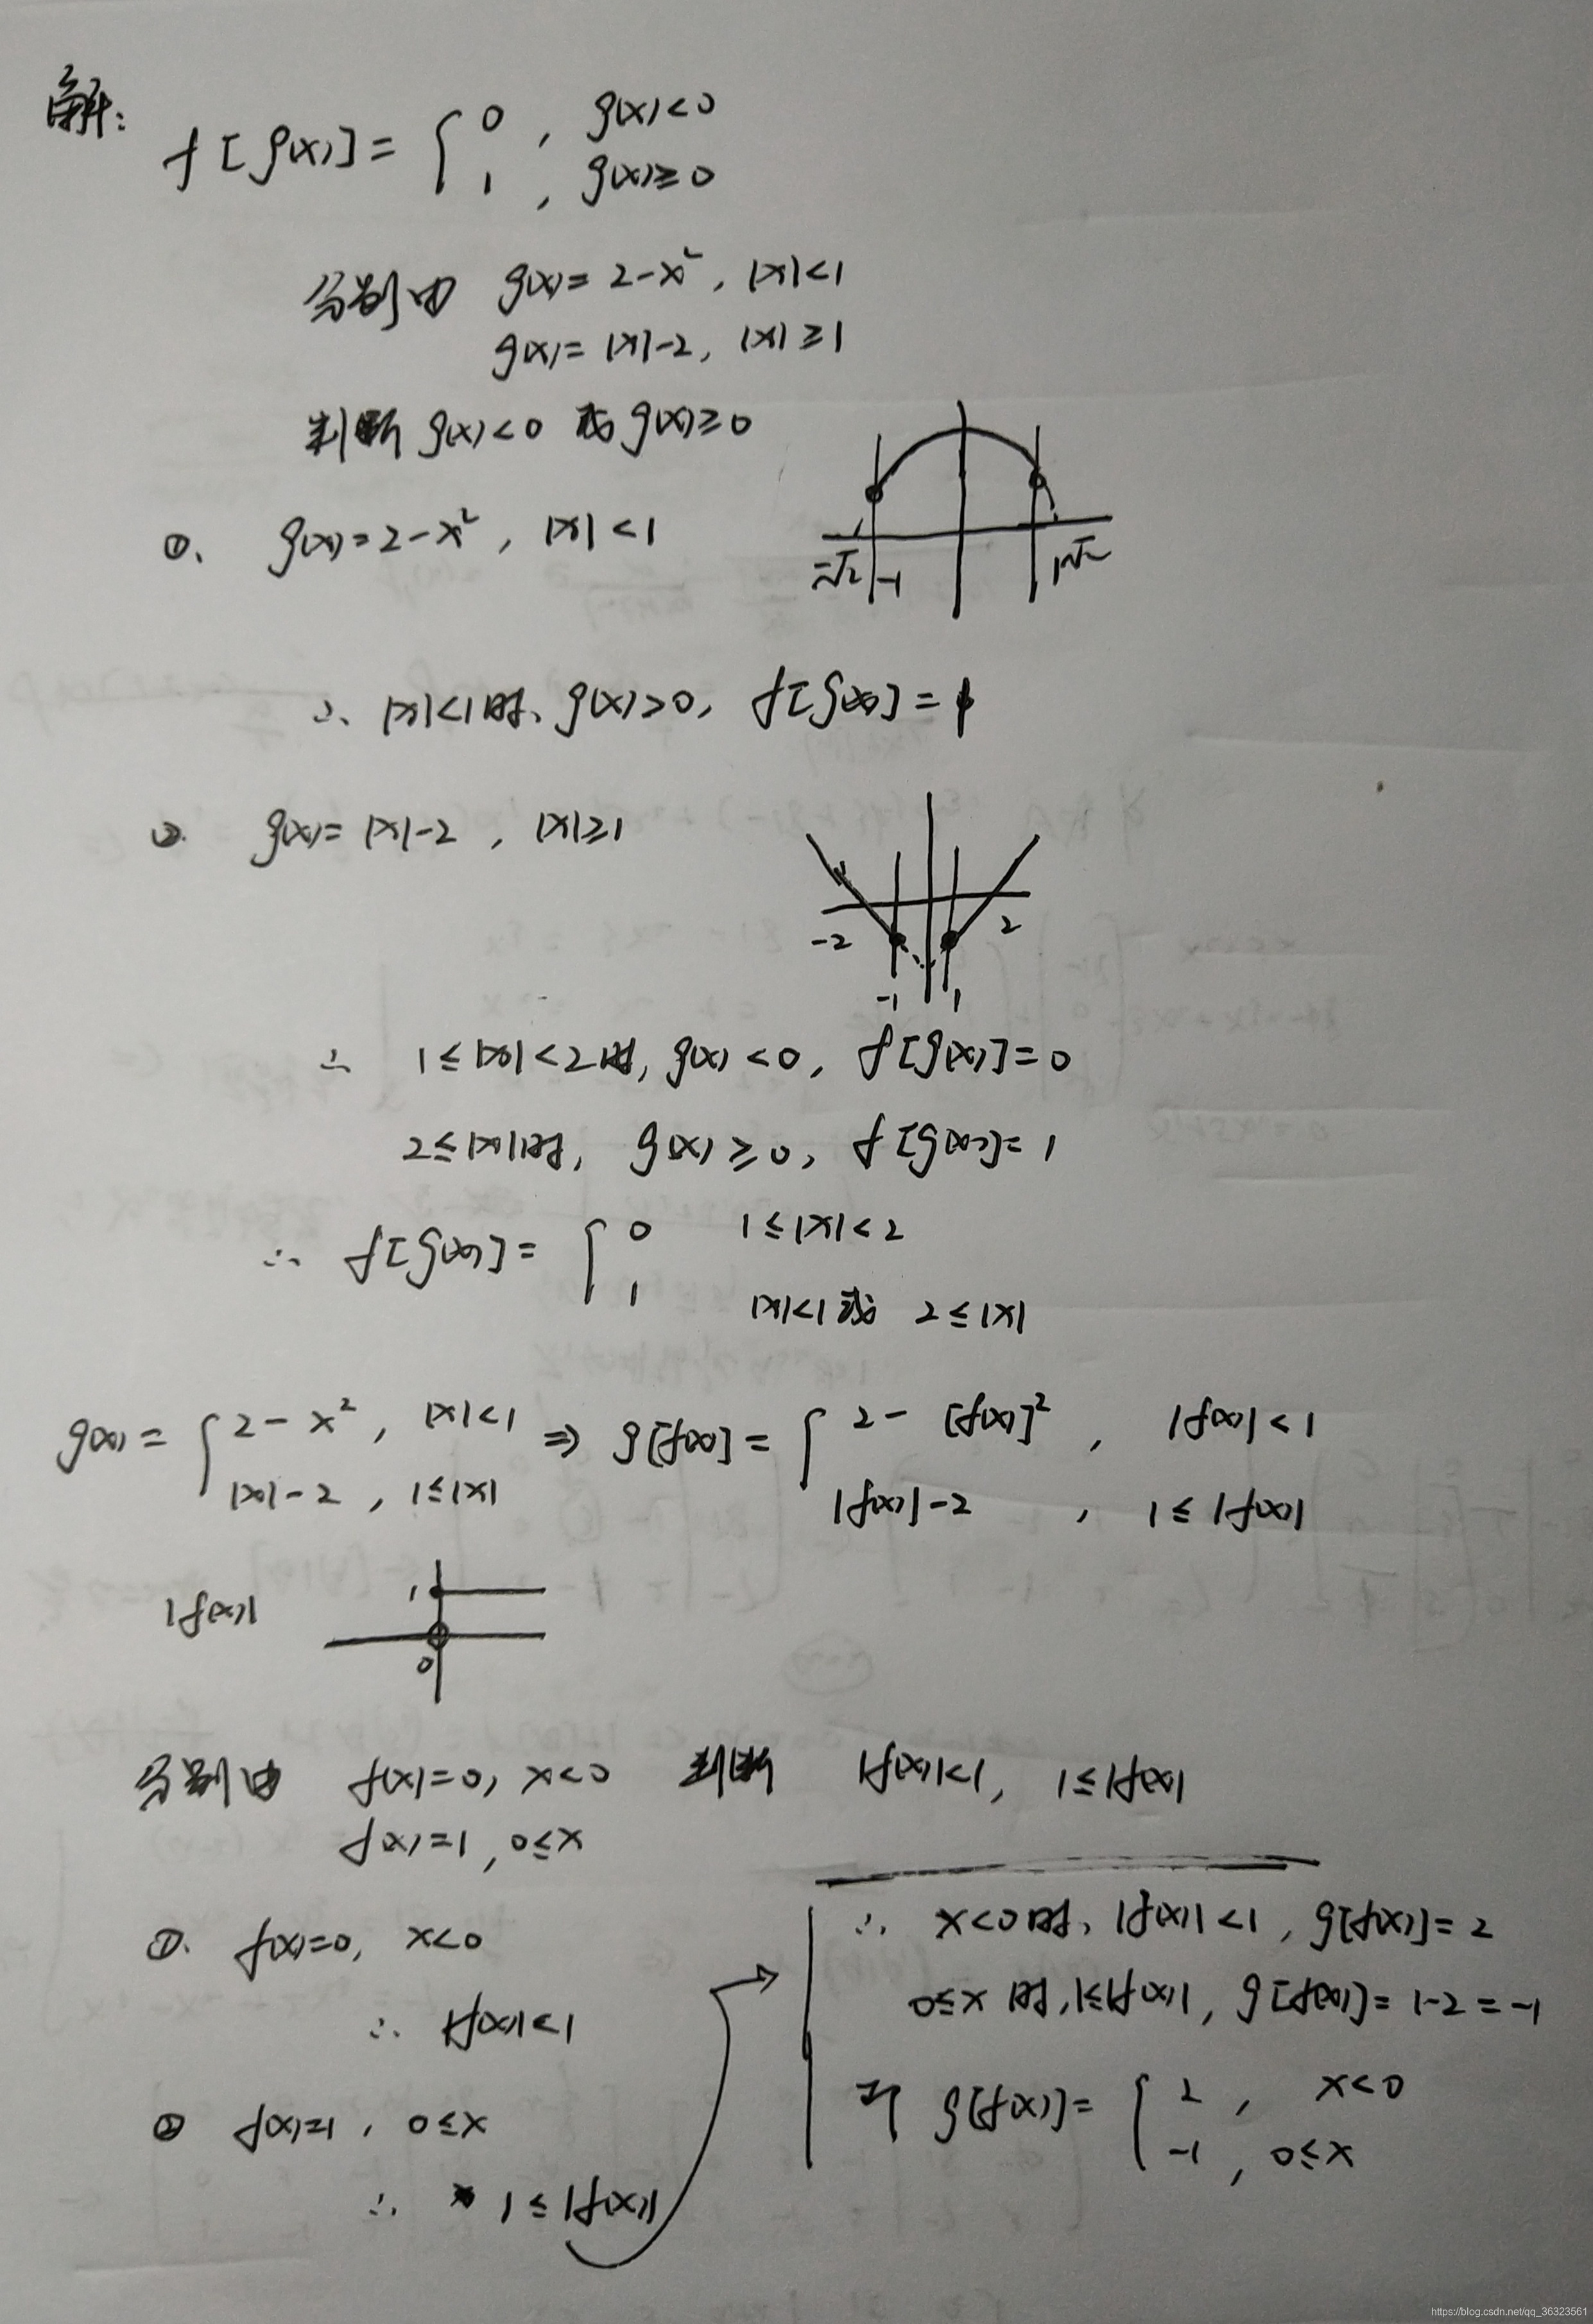 解:
f[g(x)] = { 0 , g(x)<0
1 , g(x)≥0
分别由 g(x)= 2-x², |x|<1
g(x)= |x|-2, |x|≥1
判断 g(x)<0 或 g(x)≥0
①. g(x)=2-x² , |x|<1
-√2 -1 1 √2
∴ |x|<1时、g(x)>0, f[g(x)]=1
②. g(x)= |x|-2 , |x|≥1
-2 2
-1 1
∴ 1≤|x|<2时, g(x)<0, f[g(x)]=0
2≤|x|时, g(x)≥0, f[g(x)]=1
∴ f[g(x)]= { 0 1≤|x|<2
1 |x|<1或 2≤|x|
g(x)= { 2-x² , |x|<1 ⇒ g[f(x)]= { 2-[f(x)]² , |f(x)|<1
|x|-2 , 1≤|x| |f(x)|-2 , 1≤|f(x)|
|f(x)| 1
0
分别由 f(x)=0, x<0 判断 |f(x)|<1, 1≤|f(x)|
f(x)=1, 0≤x
①. f(x)=0, x<0
∴ |f(x)|<1
② f(x)=1, 0≤x
∴ 1≤|f(x)|
∴ x<0时、|f(x)|<1, g[f(x)]=2
0≤x时,1≤|f(x)|, g[f(x)]=1-2=-1
g[f(x)]= { 2 , x<0
-1 , 0≤x
https://blog.csdn.net/qq_36323561